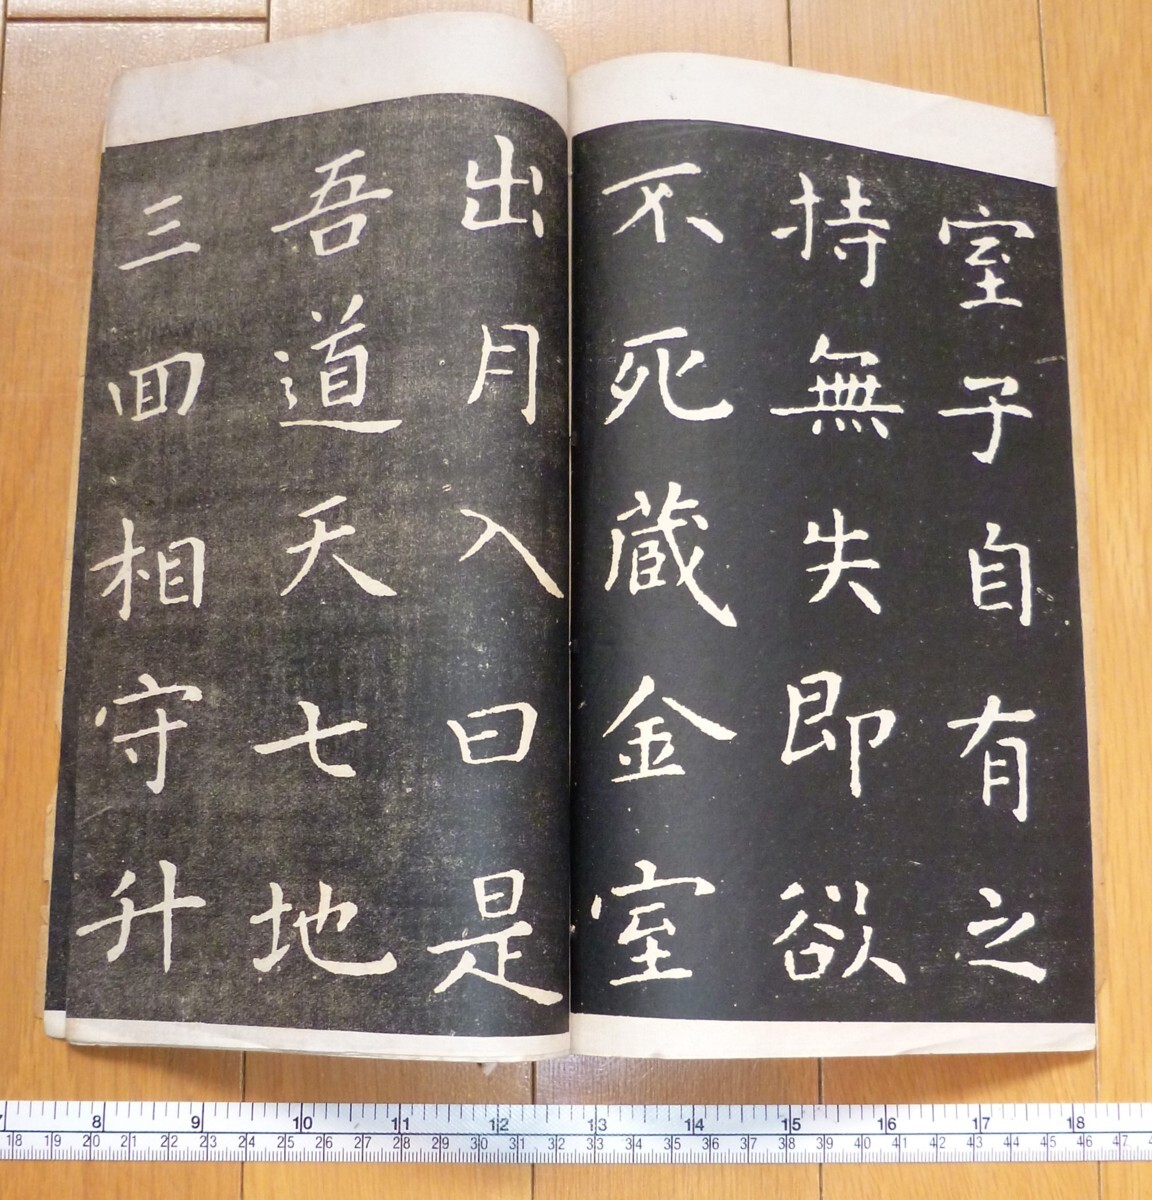 室子自有之
持無失即欲
不死藏金室
出月入日是
吾道天七地
三回相守升
7 8 9 10 11 12 13 14 15 16 17 18
18 19 20 21 22 23 24 25 26 27 28 29 30 31 32 33 34 35 36 37 38 39 40 41 42 43 44 45 46 47